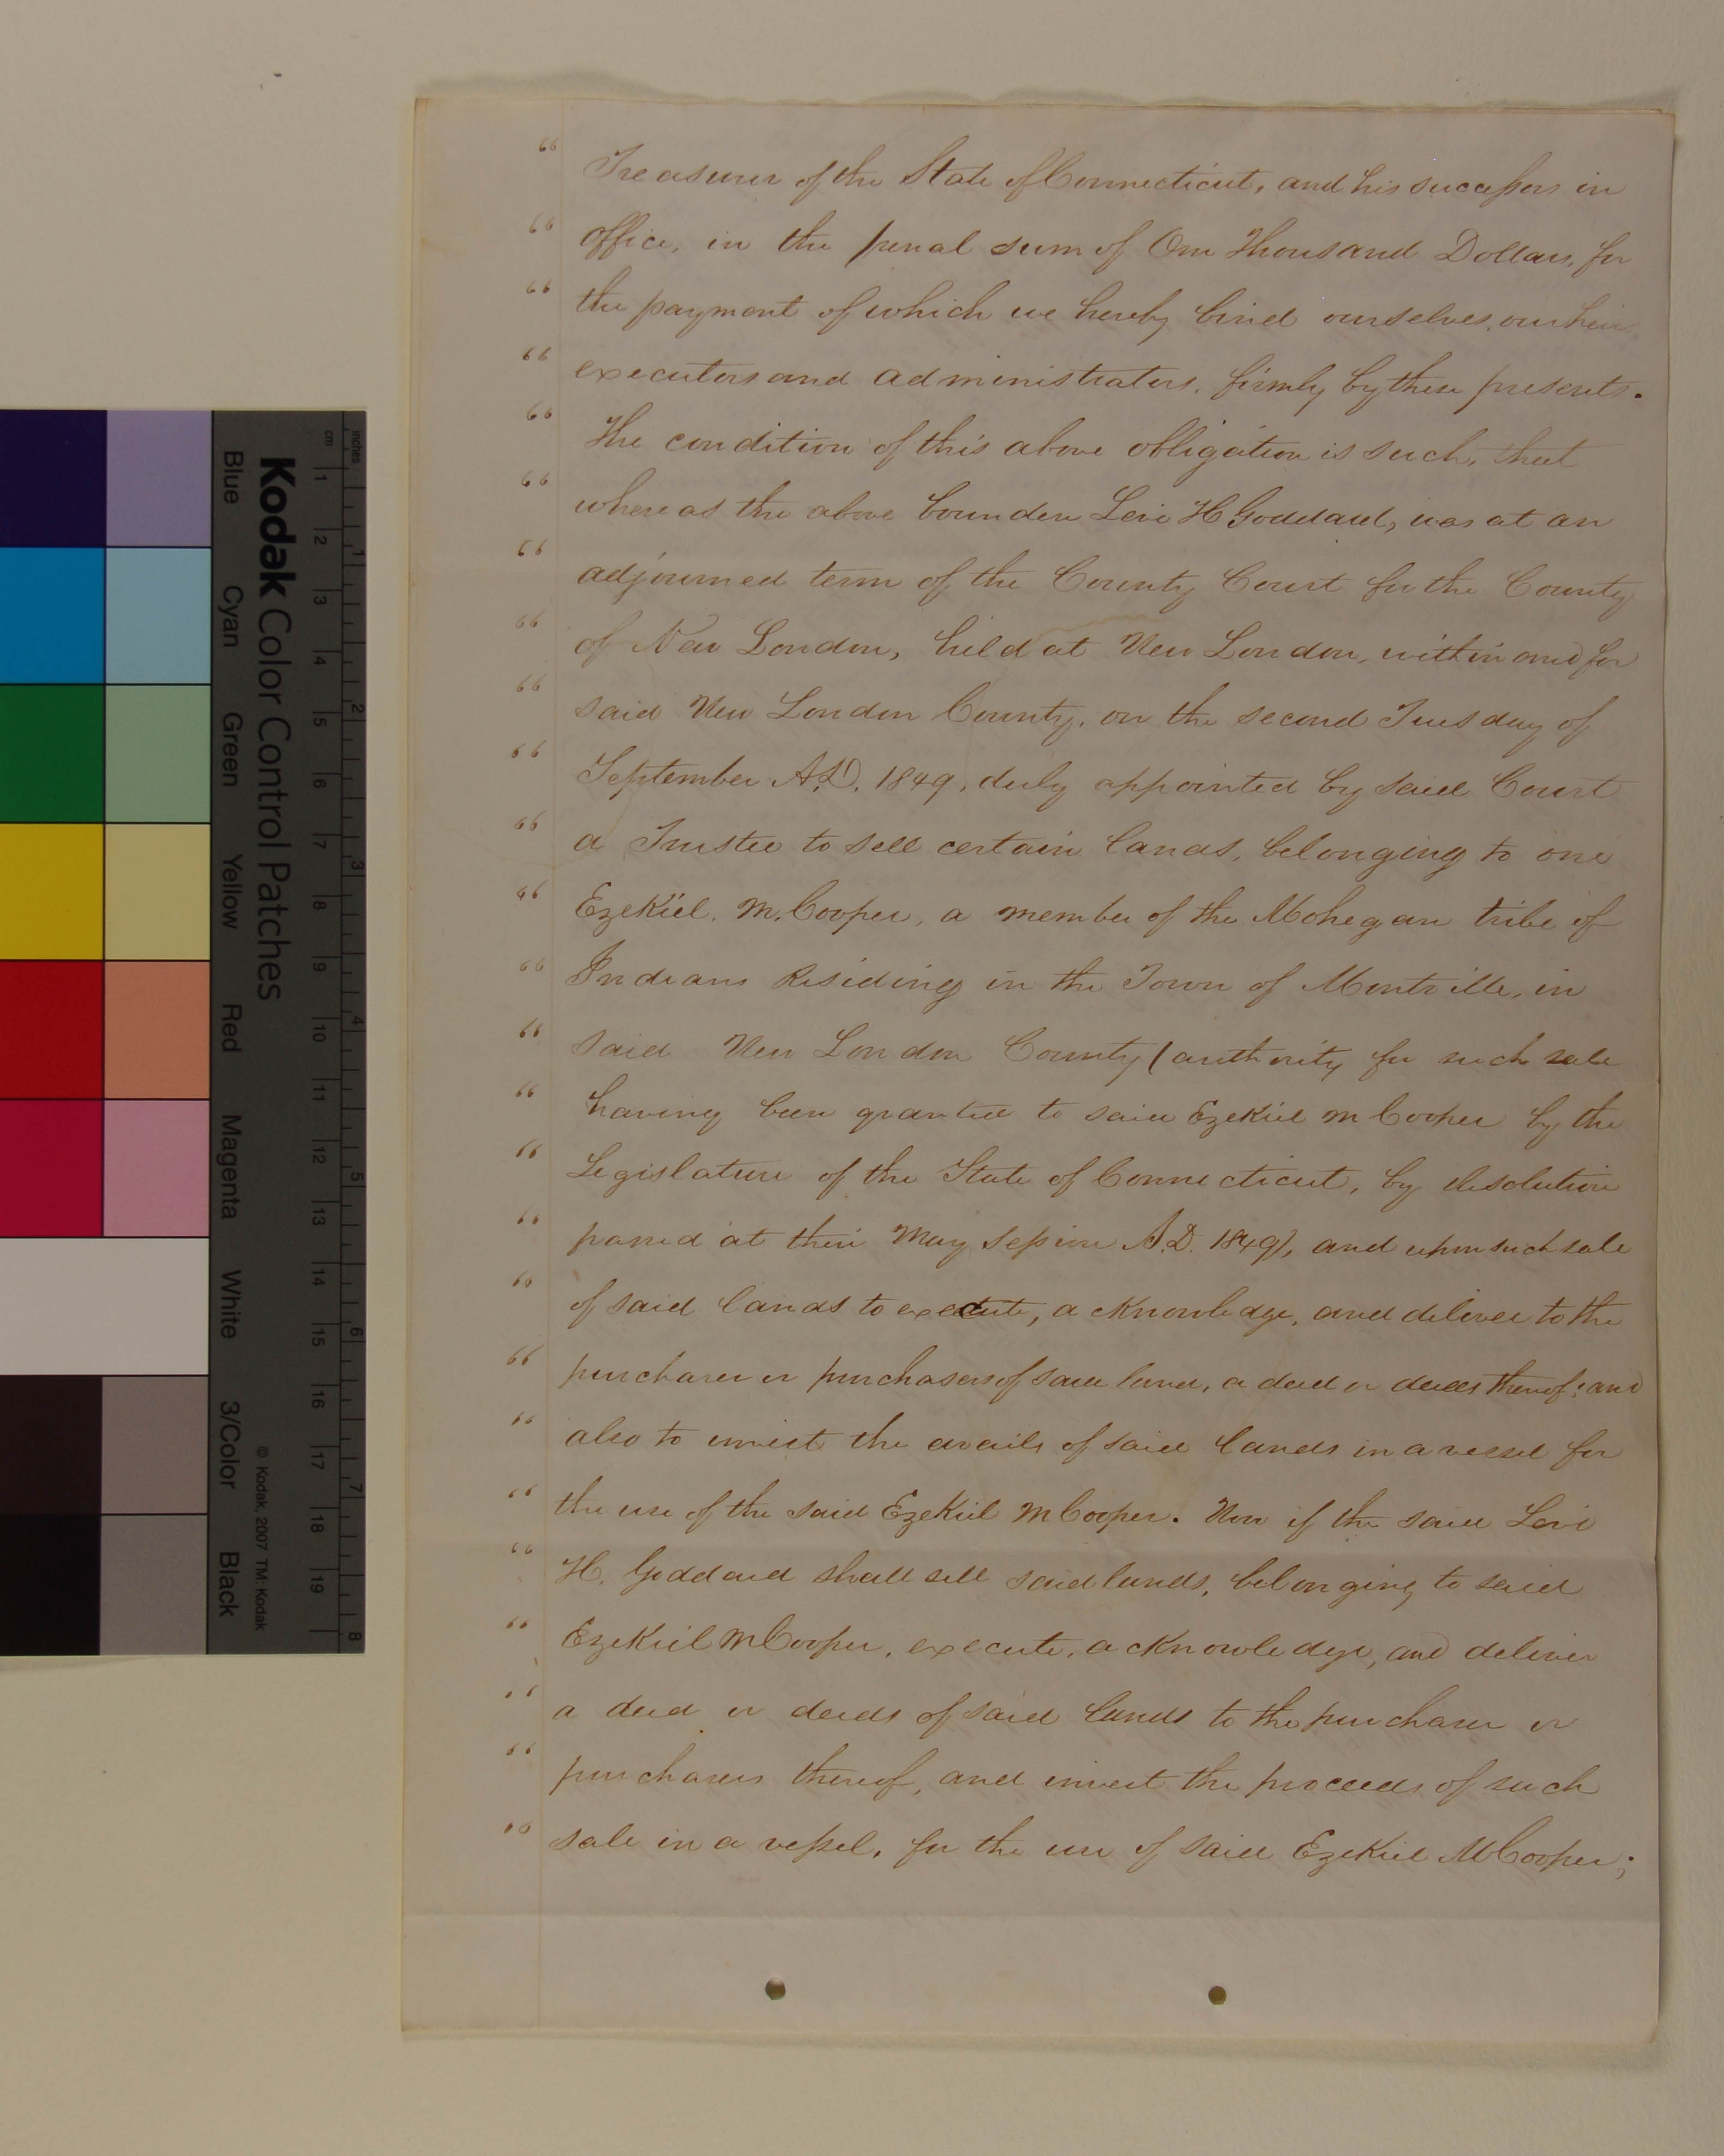 “ Treasurer of the State of Connecticut, and his successors in
“ office, in the penal sum of One Thousand Dollars, for
“ the payment of which we hereby bind ourselves, our heirs
“ executors and administrators, firmly by these presents.
“ The condition of this above obligation is such, that
“ whereas the above bounden Levi H Goddard, was at an
“ adjourned term of the County Court for the County
“ of New London, held at New London, within and for
“ said New London County, on the second Tuesday of
“ September A.D. 1849, duly appointed by said Court
“ a Trustee to sell certain lands, belonging to one
“ Ezekiel. M. Cooper, a member of the Mohegan tribe of
“ Indians Residing in the Town of Montville, in
“ said New London County (authority for such sale
“ having been granted to said Ezekiel M Cooper by the
“ Legislature of the State of Connecticut, by resolution
“ passed at their May session A.D. 1849), and upon such sale
“ of said lands to execute, acknowledge, and deliver to the
“ purchaser or purchasers of said land, a deed or deeds thereof; and
“ also to invest the avails of said lands in a vessel for
“ the use of the said Ezekiel M Cooper. Now if the said Levi
“ H. Goddard shall sell said lands, belonging to said
“ Ezekiel M Cooper, execute, acknowledge, and deliver
“ a deed or deeds of said lands to the purchaser or
“ purchasers thereof, and invest the proceeds of such
“ sale in a vessel, for the use of said Ezekiel M Cooper;
Kodak Color Control Patches
Blue Cyan Green Yellow Red Magenta White 3/Color Black
© Kodak, 2007 TM: Kodak
cm 1 2 3 4 5 6 7 8 9 10 11 12 13 14 15 16 17 18 19
inches 1 2 3 4 5 6 7 8